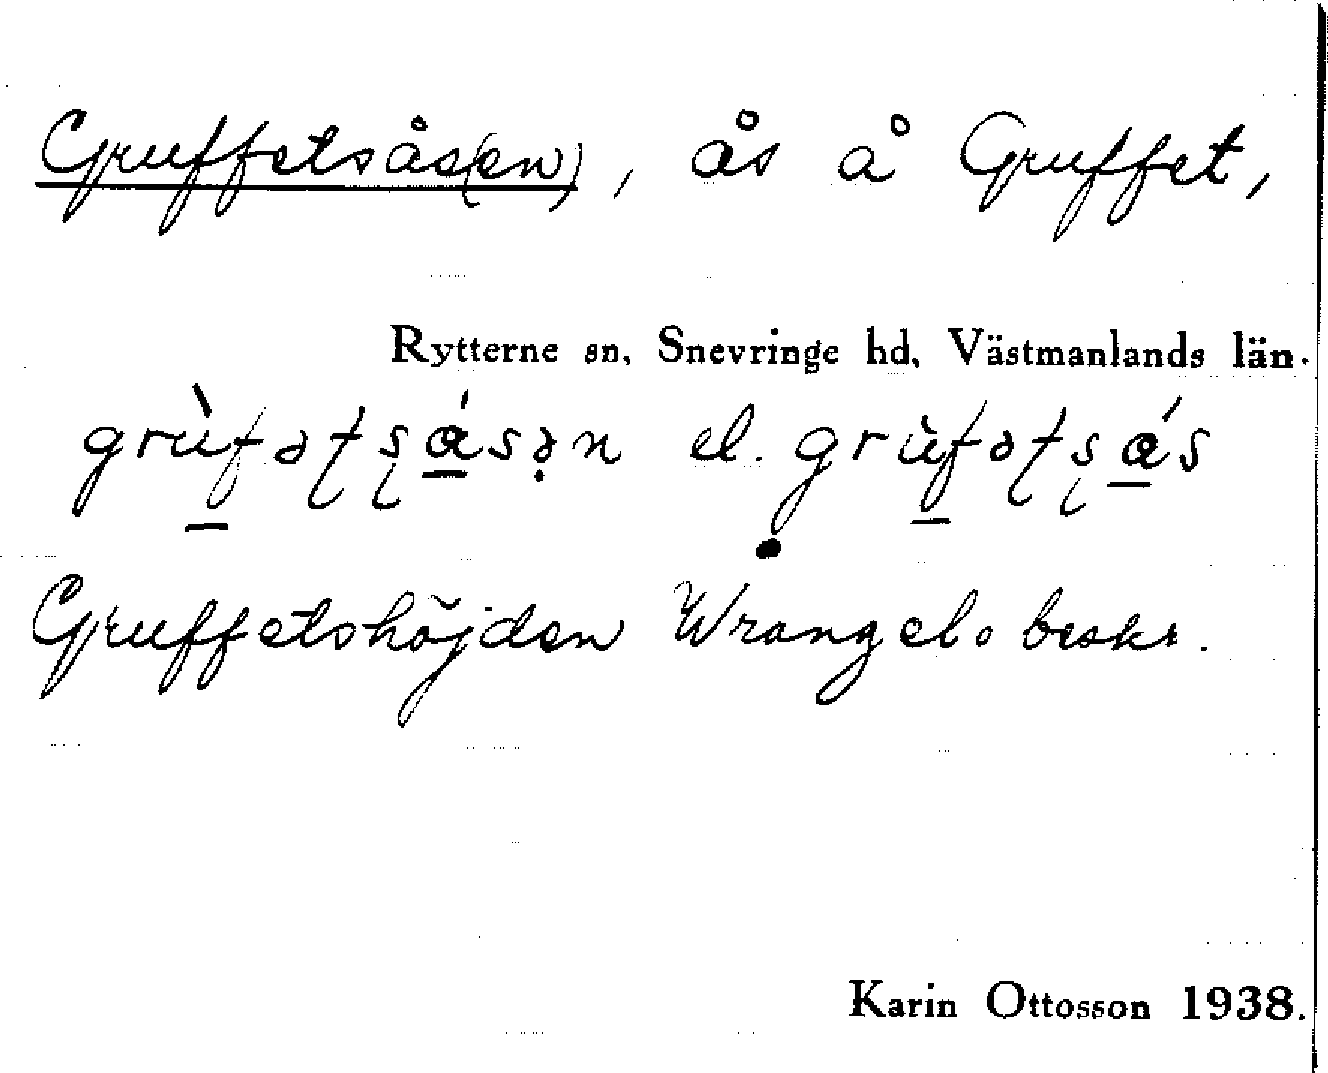 Gruffetsås(en), ås å Gruffet,
Rytterne sn, Snevringe hd, Västmanlands län.
grùfəƫʂásə̣n el. grùfəƫʂás
Gruffetshöjden Wrangel. beskr.
Karin Ottosson 1938.